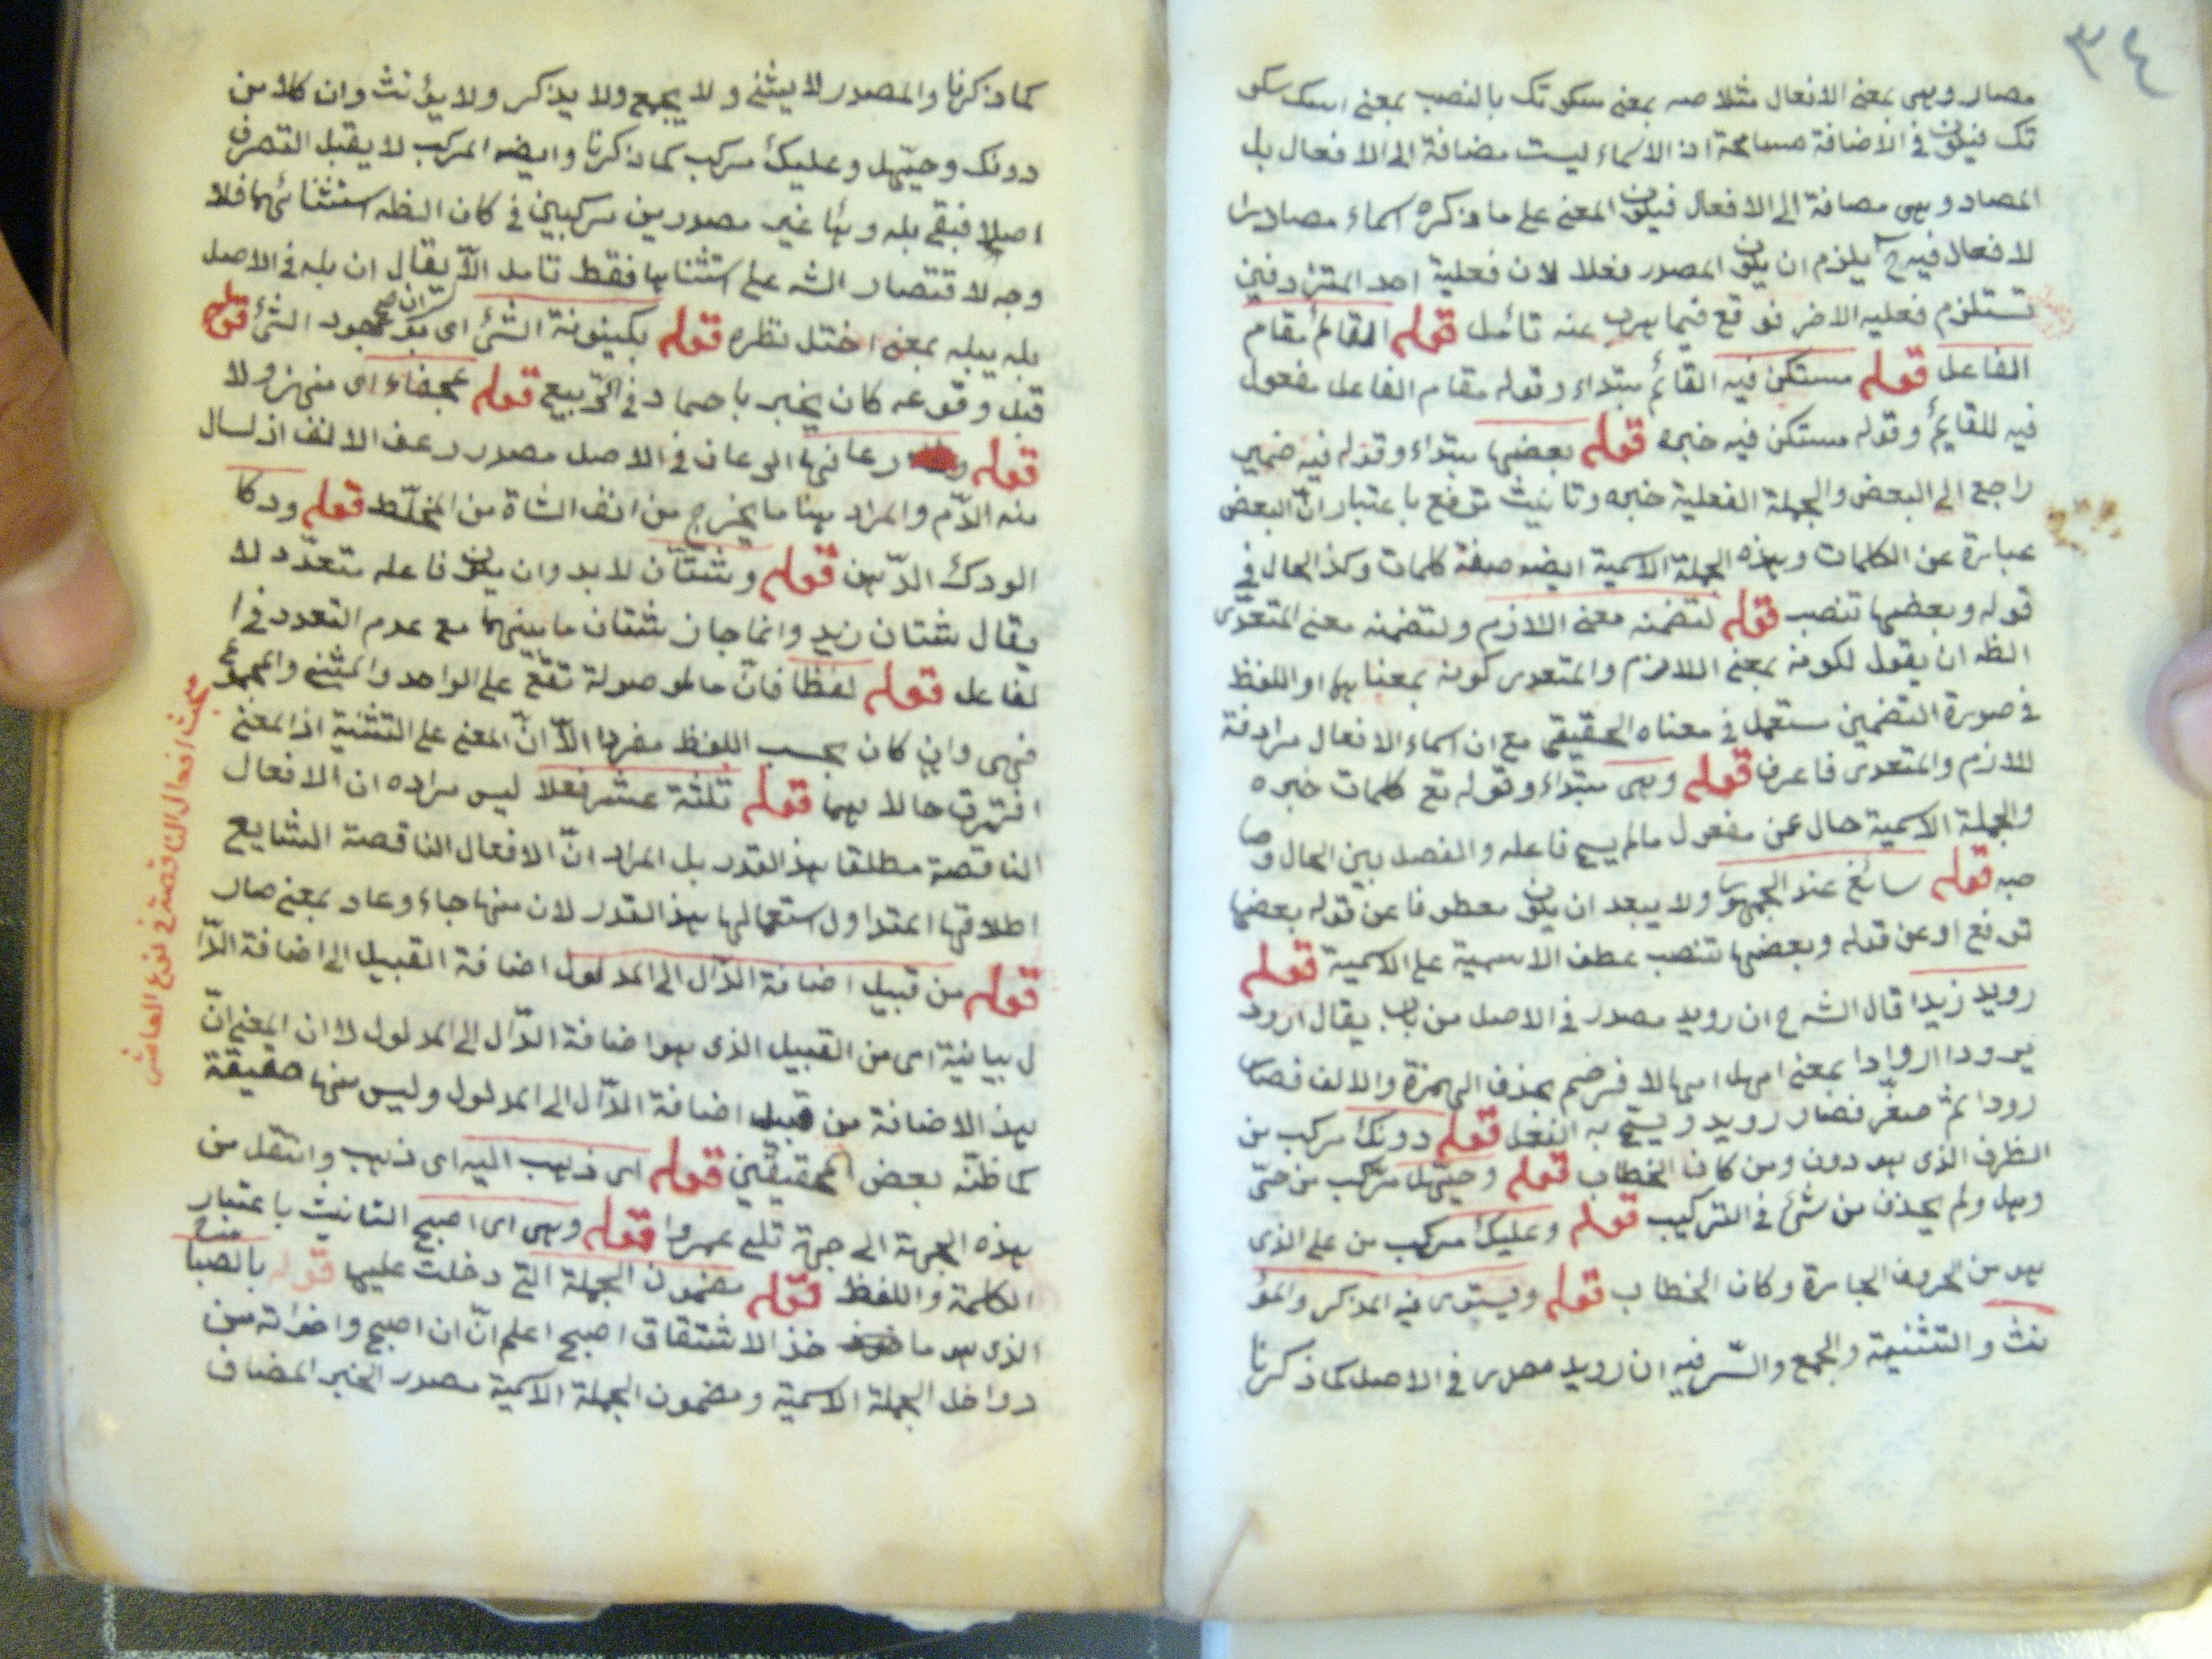 ٣٤
مصادر وهي بمعنى الافعال مثلا صه بمعنى سكوتك بالنصب بمعنى اسكت سكو
تك فيكون في الاضافة مسامحة اذ الاسماء ليست مضافة الى الافعال بل
المصادر وهي مضافة الى الافعال فيكون المعنى على ما ذكره اسماء مصادر ا
لافعال فيه ح يلزم ان يكون المصدر فعلا لان فعلية احد المترادفين
تستلزم فعلية الاخر فوقع فيما يهرب عنه تأمل قوله القائم مقام
الفاعل قوله مستكن فيه القائم مبتداء وقوله مقام الفاعل مفعول
فيه للقايم وقوله مستكن فيه خبره قوله بعضها مبتداء وقوله فيه ضمير
راجع الى البعض والجملة الفعلية خبره وتانيث ترفع باعتبار انّ البعض
عبارة عن الكلمات وهذه الجملة الاسمية ايضه صفة كلمات وكذ الحال في
قوله وبعضها تنصب قوله لتضمنه معنى اللازم ولتضمنه معنى المتعدّى
الظه ان يقول لكونه بمعنى اللازم والمتعدى كونه بمعناهما واللفظ
في صورة التضمين مستعمل في معناه الحقيقى مع ان اسماء الافعال مرادفة
للازم والمتعدى فاعرف قوله وهي مبتداء وقوله تع كلمات خبره
والجملة الاسمية حال عن مفعول مالم يسم فاعله والفصل بين الحال وصا
حبه قوله سائغ عند الجمهور ولا يبعد ان يكون معطوفا عن قوله بعضها
ترفع او عن قوله وبعضها تنصب عطف الاسمية على الاسمية قوله
رويد زيدا قال الشه ح ان رويد مصدر في الاصل من باب يقال ارود
يرودا اروادا بمعنى امهل امهالا فرخم بحذف الهمزة والالف فصار
رودا ثم صغّر فصار رويد ويسمّى به الفعل قوله دونك مركب من
الظرف الذى هو دون ومن كاف الخطاب قوله وحيّهل مركب من حىّ
وهل ولم يحذف من شئ في التركيب قوله وعليك مركب من على الذى
هو من الحروف الجارة وكاف الخطاب قوله ويستوى فيه المذكر والمؤ
نث والتثنية والجمع والسّر فيه ان رويد مصدر في الاصل كما ذكرنا
كما ذكرنا والمصدر لا يثنى ولا يجمع ولا يذكر ولا يؤنث وان كلا من
دونك وحيّهل وعليك مركب كما ذكرنا وايضه المركب لا يقبل التصرف
اصلا فبقى بله وها غير مصدرين مركبين في كان الظه استثنائهما فلا
وجه لاقتصار الشه على استثنا ها فقط تامل الّا يقال ان بله في الاصل
بله يبله بمعنى اختل نظره قوله بكينونة الشئ اى بوجود الشئ قوله
قبل وقوعه كان يخبر باحماد في الربيع قوله عجفاء اى مهزولا
قوله رعانها الرعان في الاصل مصدر رعف الانف اذ لسال
منه الدّم والمراد هنا ما يخرج من انف الشاة من المخلّط قوله ودكا
الودك الدّهن قوله وشتّان لا بد وان يكون فاعله متعدّد لا
يقال شتان زيد وانما جاز شتان ما بينهما مع عدم التعدد في ا
لفاعل قوله لفظا فانّ ما الموصولة تقع على الواحد والمثنى والمجموع
فهى وان كان بحسب اللفظ مفردا الّا انّ المعنى على التثنية اذ المعنى
افترق حالاهما قوله ثلثة عشر فعلا ليس مراده ان الافعال
الناقصة مطلقا هذ القدر بل المراد انّ الافعال الناقصة الشايع
اطلاقها المتداول استعمالها هذ القدر لان منها جاء وعاد بمعنى صار
قوله من قبيل اضافة الدّال الى المدلول اضافة القبيل الى اضافة الدّا
ل بيانية اى من القبيل الذى هو اضافة الدّال الى المدلول لا ان المعنى انّ
هذ الاضافة من قبيل اضافة الدّال الى المدلول وليس منها حقيقة
كما ظنّه بعض المحقيقين قوله اى ذهب اليه اى ذهب وانتقل من
هذه الجهة الى جهة تلى عمروا قوله وهي اى اصبح التانيث باعتبار
الكلمة واللفظ قوله مضمون الجملة التى دخلت عليها قوله بالصبا
الذى هو ما خذ الاشتقاق اصبح اعلم انّ ان اصبح واخواته من
دواخل الجملة الاسمية ومضمون الجملة الاسمية مصدر الخبر المضاف
مبحث افعال الناقصة في نوع العاشر